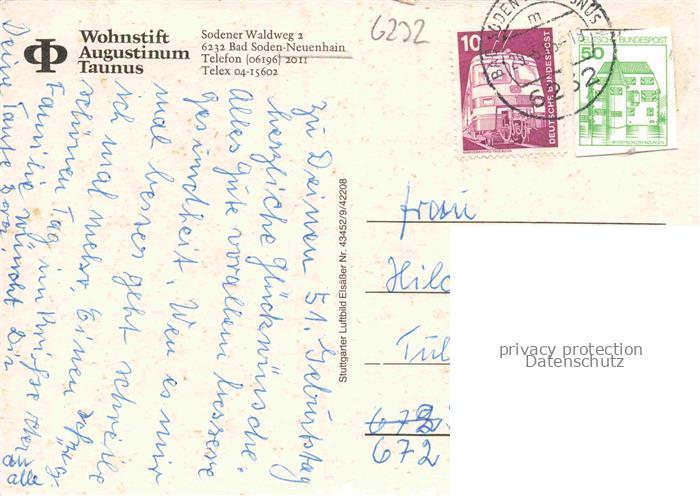 Wohnstift
Augustinum
Taunus
Sodener Waldweg 2
6232 Bad Soden-Neuenhain
Telefon (06196) 2011
Telex 04-15602
6232
10
DEUTSCHE BUNDESPOST
50
DEUTSCHE BUNDESPOST
6232
zu Deinen 51. Geburtstag
herzliche Glückwünsche.
Alles gute vorallem bessere
gesundheit. Wen es mir
mal besser geht schreibe
ich mal mehr. Einen
schönen Tag im Kreise der
Familie wünscht Dir
Deine Tante
an alle
Stuttgarter Luftbild Elsäßer Nr. 43452/9/42208
Frau
Hil
Tul
672
672
privacy protection
Datenschutz